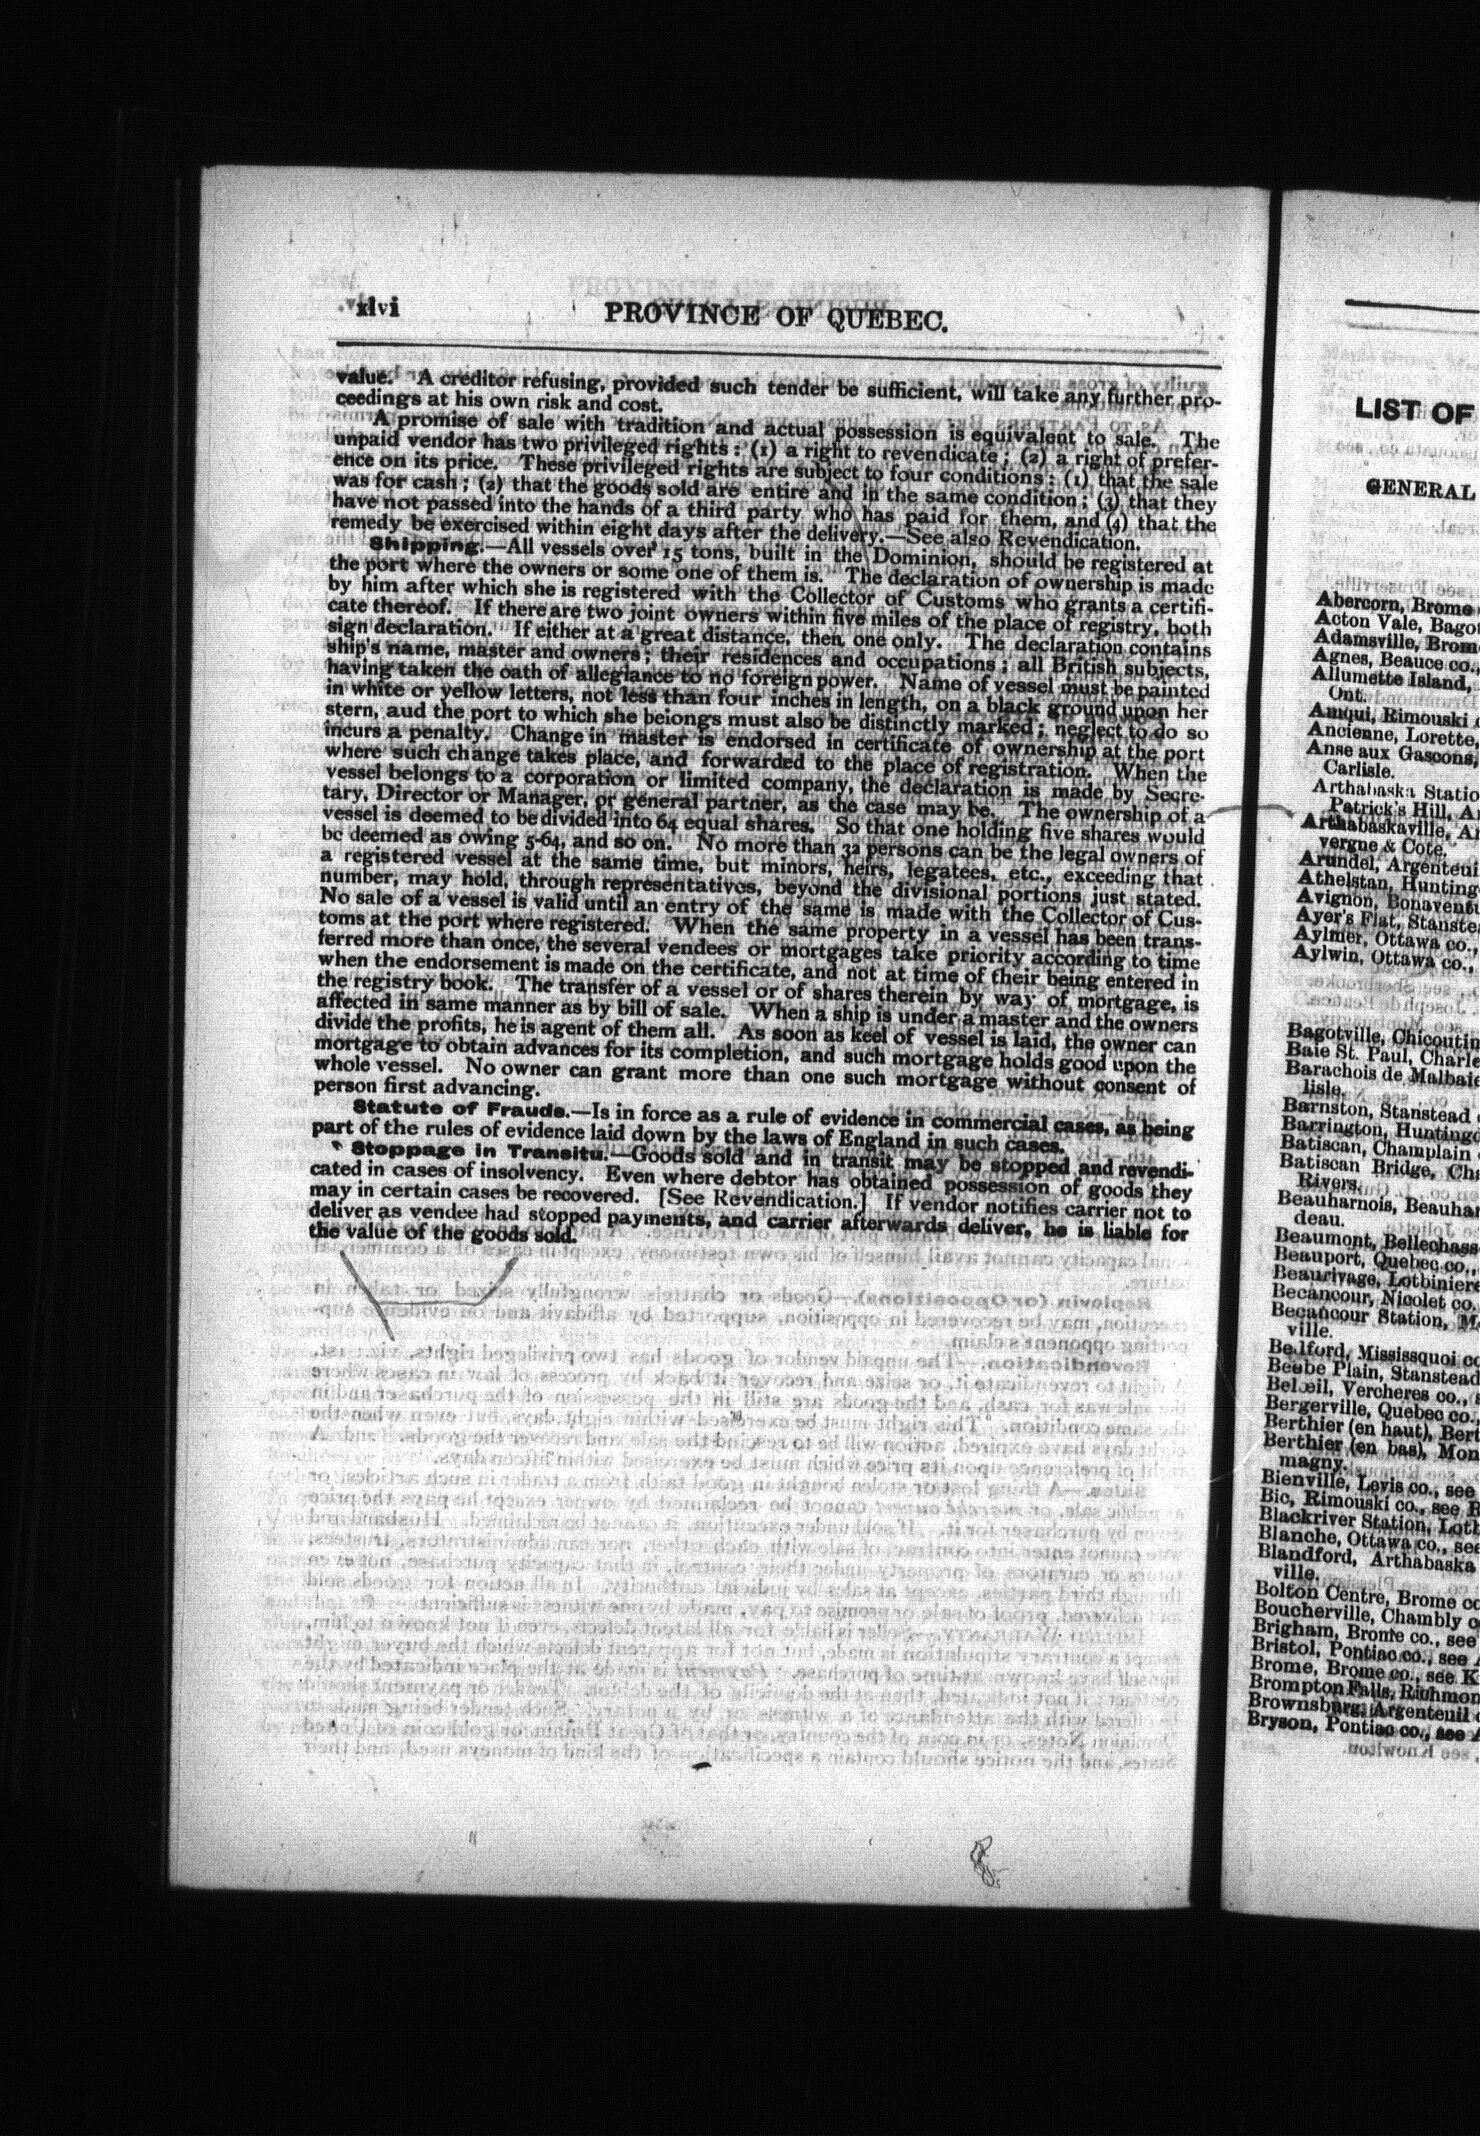 xlvi
PROVINCE OF QUEBEC.
value. A creditor refusing, provided such tender be sufficient, will take any further pro-
ceedings at his own risk and cost.
A promise of sale with tradition and actual possession is equivalent to sale. The
unpaid vendor has two privileged rights: (1) a right to revendicate; (2) a right of prefer-
ence on its price. These privileged rights are subject to four conditions: (1) that the sale
was for cash; (2) that the goods sold are entire and in the same condition; (3) that they
have not passed into the hands of a third party who has paid for them, and (4) that the
remedy be exercised within eight days after the delivery.—See also Revendication.
Shipping.—All vessels over 15 tons, built in the Dominion, should be registered at
the port where the owners or some one of them is. The declaration of ownership is made
by him after which she is registered with the Collector of Customs who grants a certifi-
cate thereof. If there are two joint owners within five miles of the place of registry, both
sign declaration. If either at a great distance, then one only. The declaration contains
ship's name, master and owners; their residences and occupations; all British subjects,
having taken the oath of allegiance to no foreign power. Name of vessel must be painted
in white or yellow letters, not less than four inches in length, on a black ground upon her
stern, aud the port to which she belongs must also be distinctly marked; neglect to do so
incurs a penalty. Change in master is endorsed in certificate of ownership at the port
where such change takes place, and forwarded to the place of registration. When the
vessel belongs to a corporation or limited company, the declaration is made by Secre-
tary, Director or Manager, or general partner, as the case may be. The ownership of a
vessel is deemed to be divided into 64 equal shares. So that one holding five shares would
be deemed as owing 5-64, and so on. No more than 32 persons can be the legal owners of
a registered vessel at the same time, but minors, heirs, legatees, etc., exceeding that
number, may hold, through representatives, beyond the divisional portions just stated.
No sale of a vessel is valid until an entry of the same is made with the Collector of Cus-
toms at the port where registered. When the same property in a vessel has been trans-
ferred more than once, the several vendees or mortgages take priority according to time
when the endorsement is made on the certificate, and not at time of their being entered in
the registry book. The transfer of a vessel or of shares therein by way of mortgage, is
affected in same manner as by bill of sale. When a ship is under a master and the owners
divide the profits, he is agent of them all. As soon as keel of vessel is laid, the owner can
mortgage to obtain advances for its completion, and such mortgage holds good upon the
whole vessel. No owner can grant more than one such mortgage without consent of
person first advancing.
Statute of Frauds.—Is in force as a rule of evidence in commercial cases, as being
part of the rules of evidence laid down by the laws of England in such cases.
Stoppage in Transitu.—Goods sold and in transit may be stopped and revendi-
cated in cases of insolvency. Even where debtor has obtained possession of goods they
may in certain cases be recovered. [See Revendication.] If vendor notifies carrier not to
deliver as vendee had stopped payments, and carrier afterwards deliver, he is liable for
the value of the goods sold.
LIST OF
GENERAL
Abercorn, Brome
Acton Vale, Bagot
Adamsville, Brom
Agnes, Beauce co.,
Allumette Island,
Ont.
Amqui, Rimouski
Ancienne, Lorette,
Anse aux Gascons,
Carlisle.
Arthabaska Statio
Patrick's Hill, A
Arthabaskaville, Ar
vergne & Cote.
Arundel, Argenteui
Athelstan, Hunting
Avignon, Bonaventu
Ayer's Flat, Stanste
Aylmer, Ottawa co.,
Aylwin, Ottawa co.,
Bagotville, Chicoutin
Baie St. Paul, Charle
Barachois de Malbaie
lisle.
Barnston, Stanstead
Barrington, Huntingd
Batiscan, Champlain
Batiscan Bridge, Cha
Rivers.
Beauharnois, Beauhar
deau.
Beaumont, Bellechass
Beauport, Quebec co.,
Beaurivage, Lotbiniere
Becancour, Nicolet co.
Becancour Station, M
ville.
Bedford, Mississquoi co
Beebe Plain, Stanstead
Belœil, Vercheres co.,
Bergerville, Quebec co.
Berthier (en haut), Bert
Berthier (en bas), Mon
magny.
Bienville, Levis co., see
Bic, Rimouski co., see B
Blackriver Station, Lotb
Blanche, Ottawa co., see
Blandford, Arthabaska
ville.
Bolton Centre, Brome co
Boucherville, Chambly c
Brigham, Brome co., see
Bristol, Pontiac co., see
Brome, Brome co., see K
Brompton Falls, Richmon
Brownsburg, Argenteuil
Bryson, Pontiac co., see